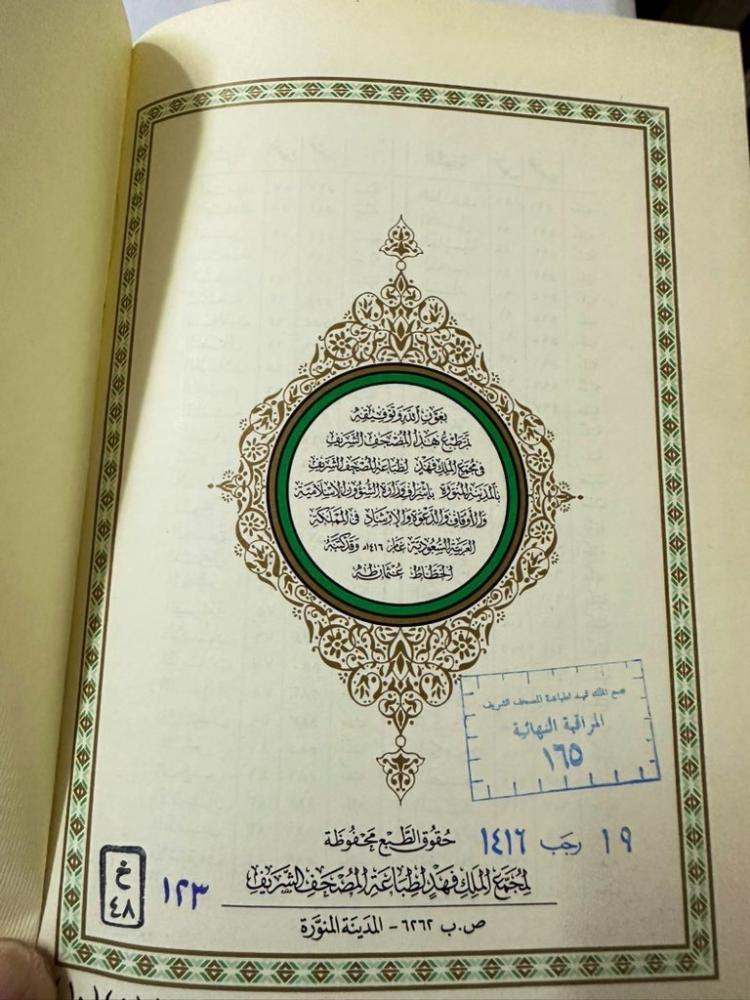 بِعَوْنِ اللهِ وَتَوْفِيقِهِ
تَمَّ طَبْعُ هٰذَا المُصْحَفِ الشَّرِيفِ
فِي مُجَمَّعِ المَلِكِ فَهْد لِطِبَاعَةِ المُصْحَفِ الشَّرِيفِ
بِالمَدِينَةِ المُنَوَّرَةِ بِإِشْرَافِ وَزَارَةِ الشُّؤُونِ الإِسْلَامِيَّةِ
وَالأَوْقَافِ وَالدَّعْوَةِ وَالإِرْشَادِ فِي المَمْلَكَةِ
العَرَبِيَّةِ السُّعُودِيَّةِ عَامَ ١٤١٦هـ وَقَدْ كَتَبَهُ
الخَطَّاطُ عُثْمَان طٰهَ
مجمع الملك فهد لطباعة المصحف الشريف
المراقبة النهائية
١٦٥
١٩ رجب ١٤١٦
حُقُوقُ الطَّبْعِ مَحْفُوظَة
لِمُجَمَّعِ المَلِكِ فَهْدٍ لِطِبَاعَةِ المُصْحَفِ الشَّرِيفِ
١٢٣
خ
٤٨
ص.ب ٦٢٦٢ - المَدِينَة المُنَوَّرَة